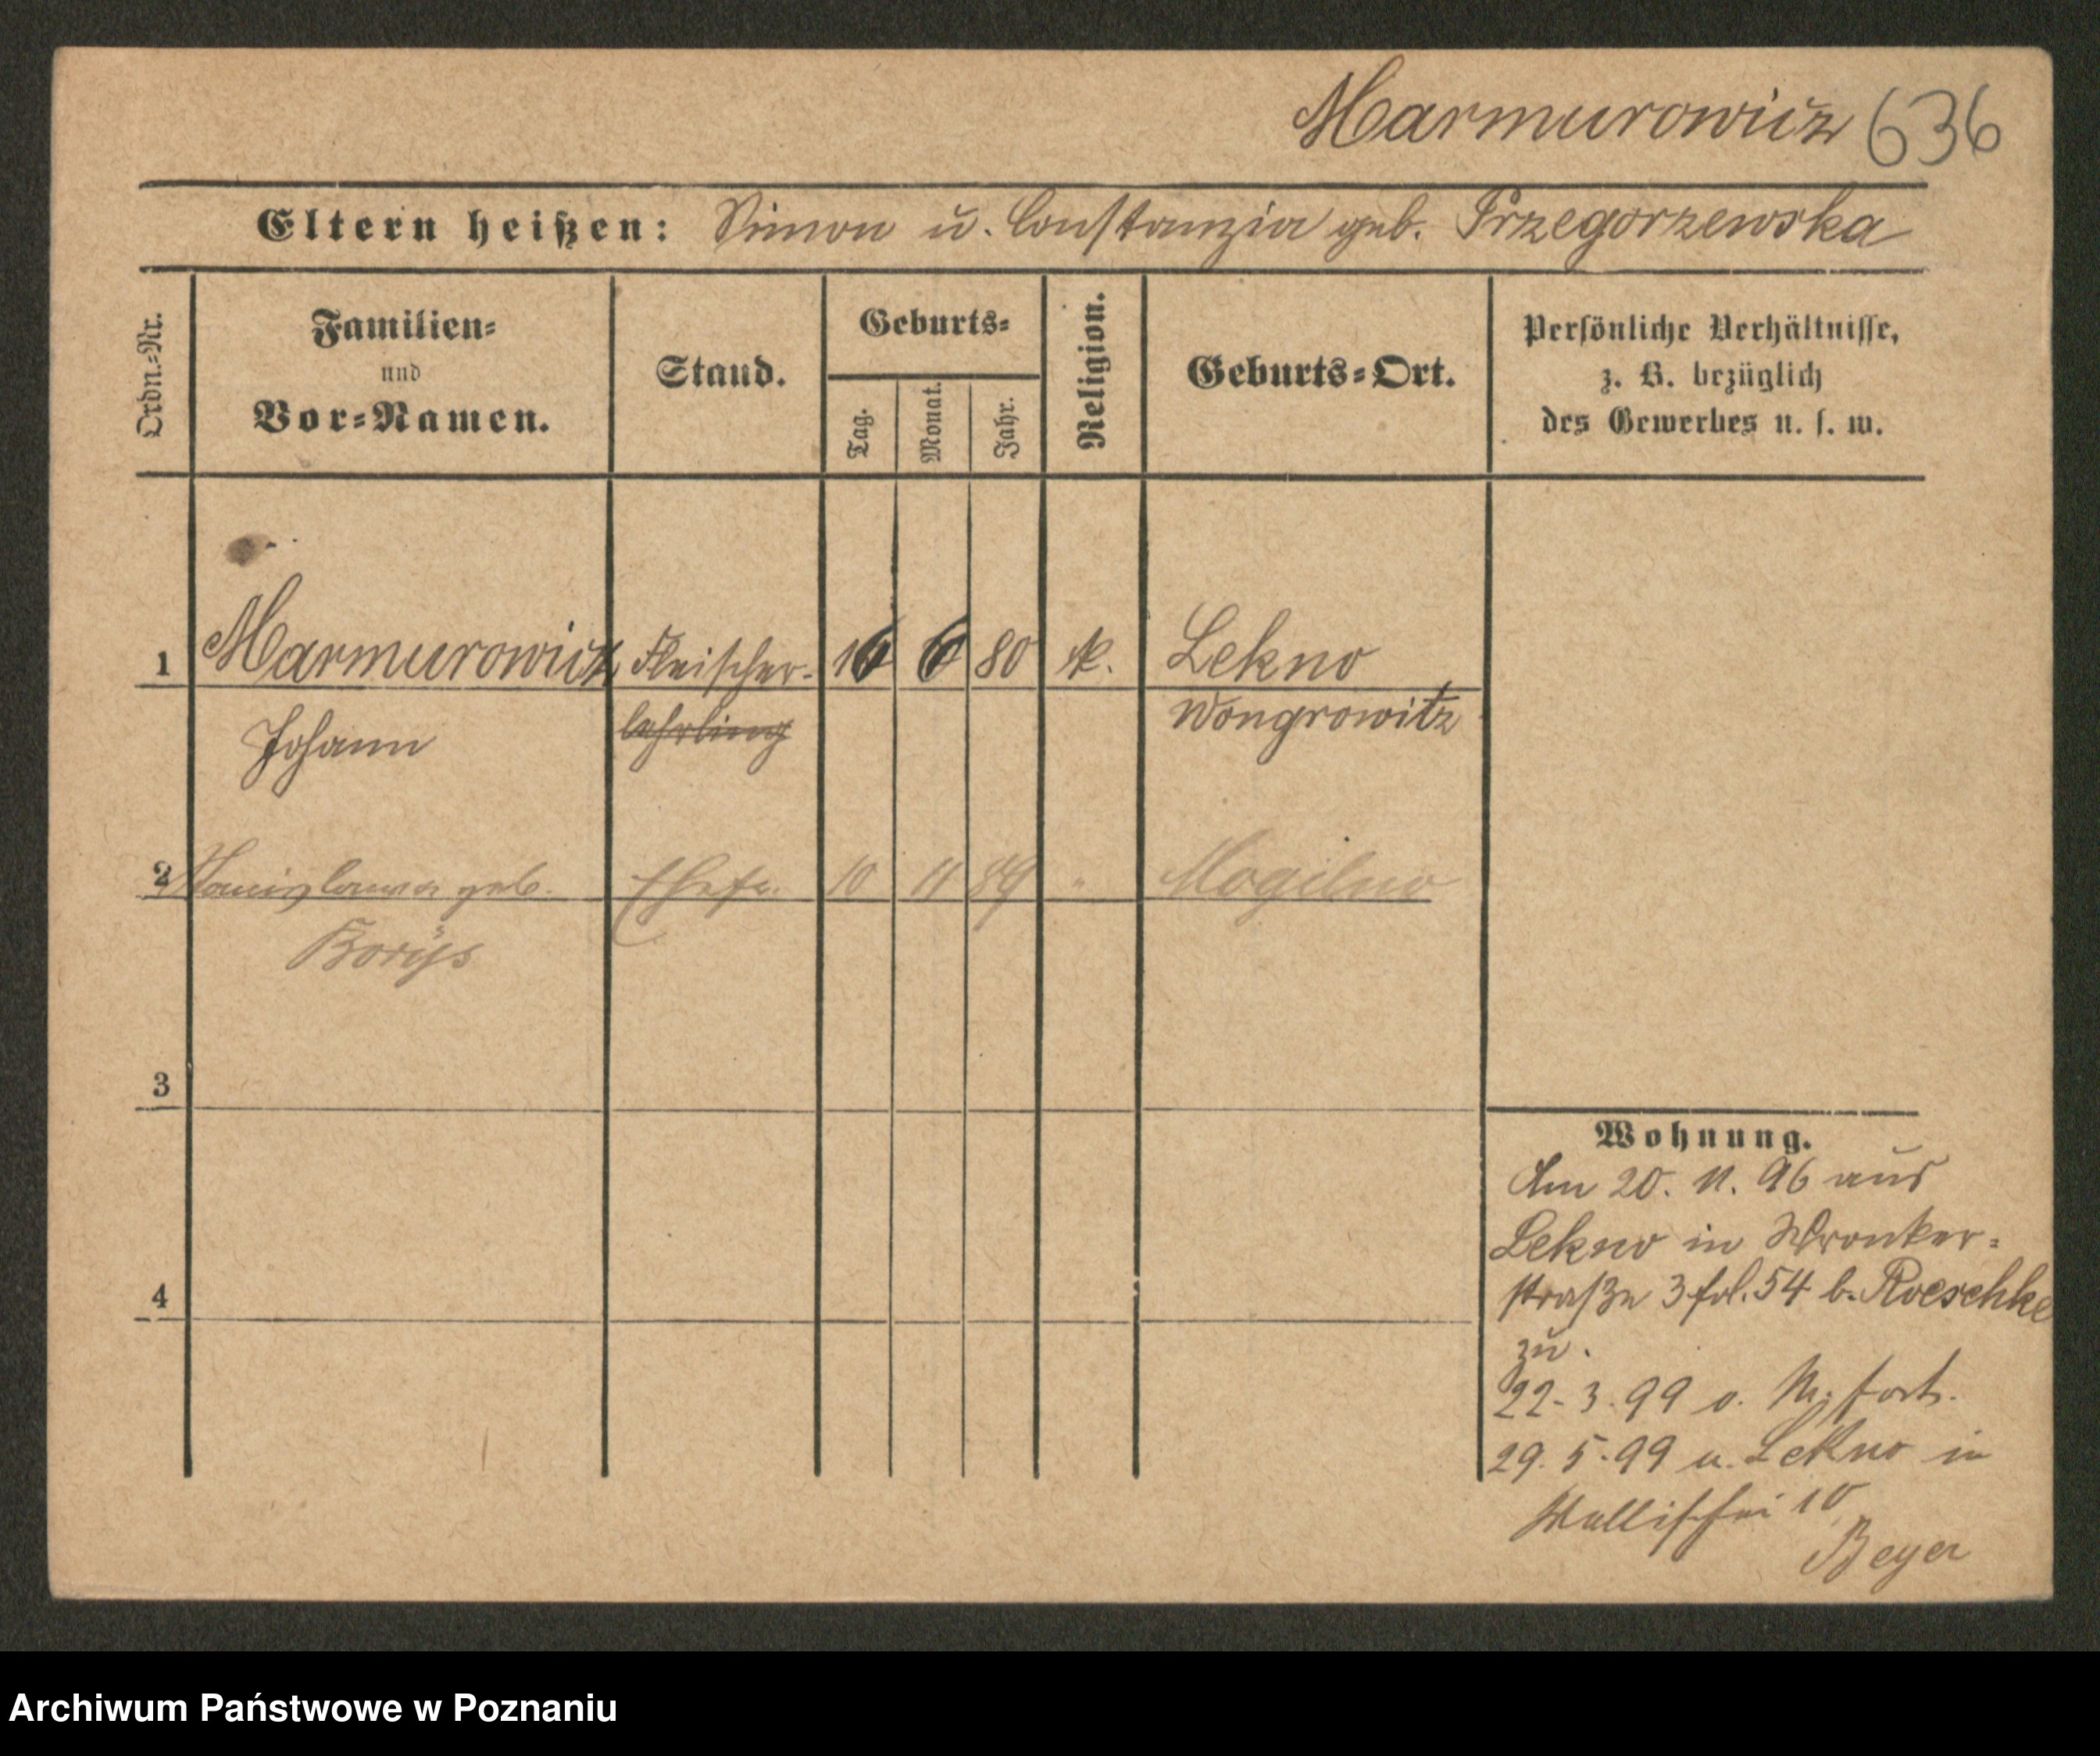 Marmurowicz 636
Eltern heißen: Simon u. Constanzia geb. Przegorzewska
Ordn.-Nr.
Familien-
und
Vor-Namen.
Stand.
Geburts-
Tag.
Monat.
Jahr.
Religion.
Geburts-Ort.
Persönliche Verhältnisse,
z. B. bezüglich
des Gewerbes u. s. w.
1 Marmurowicz Fleischer- 16 6 80 k. Lekno
Johann lehrling Wongrowitz
2 Stanislawa geb. Ehefr. 10 11 89 " Mogilno
Borys
3
4
Wohnung.
Am 20. 11. 96 aus
Lekno in Wronker-
straße 3 fol. 54 b. Roeschke
zu.
22.3.99 o. M. fort.
29.5.99 u. Lekno in
Wallischei 10
Beyer
Archiwum Państwowe w Poznaniu